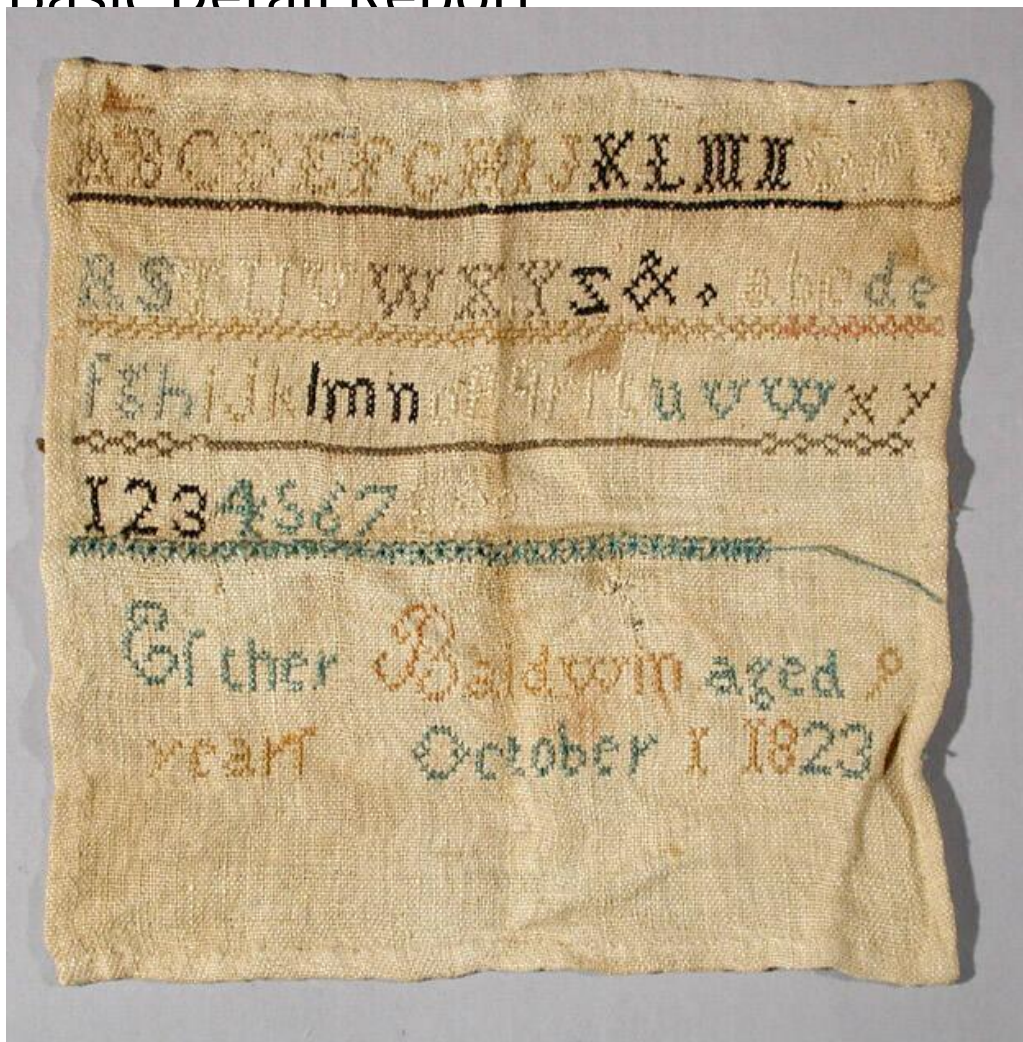 Basic Detail Report
ABCDEFGHIJKLMN
RSTUVWXYZ&. abcde
fghijklmn uvwxy
1234567
Eſther Baldwin aged 9
yearſ October 1 1823